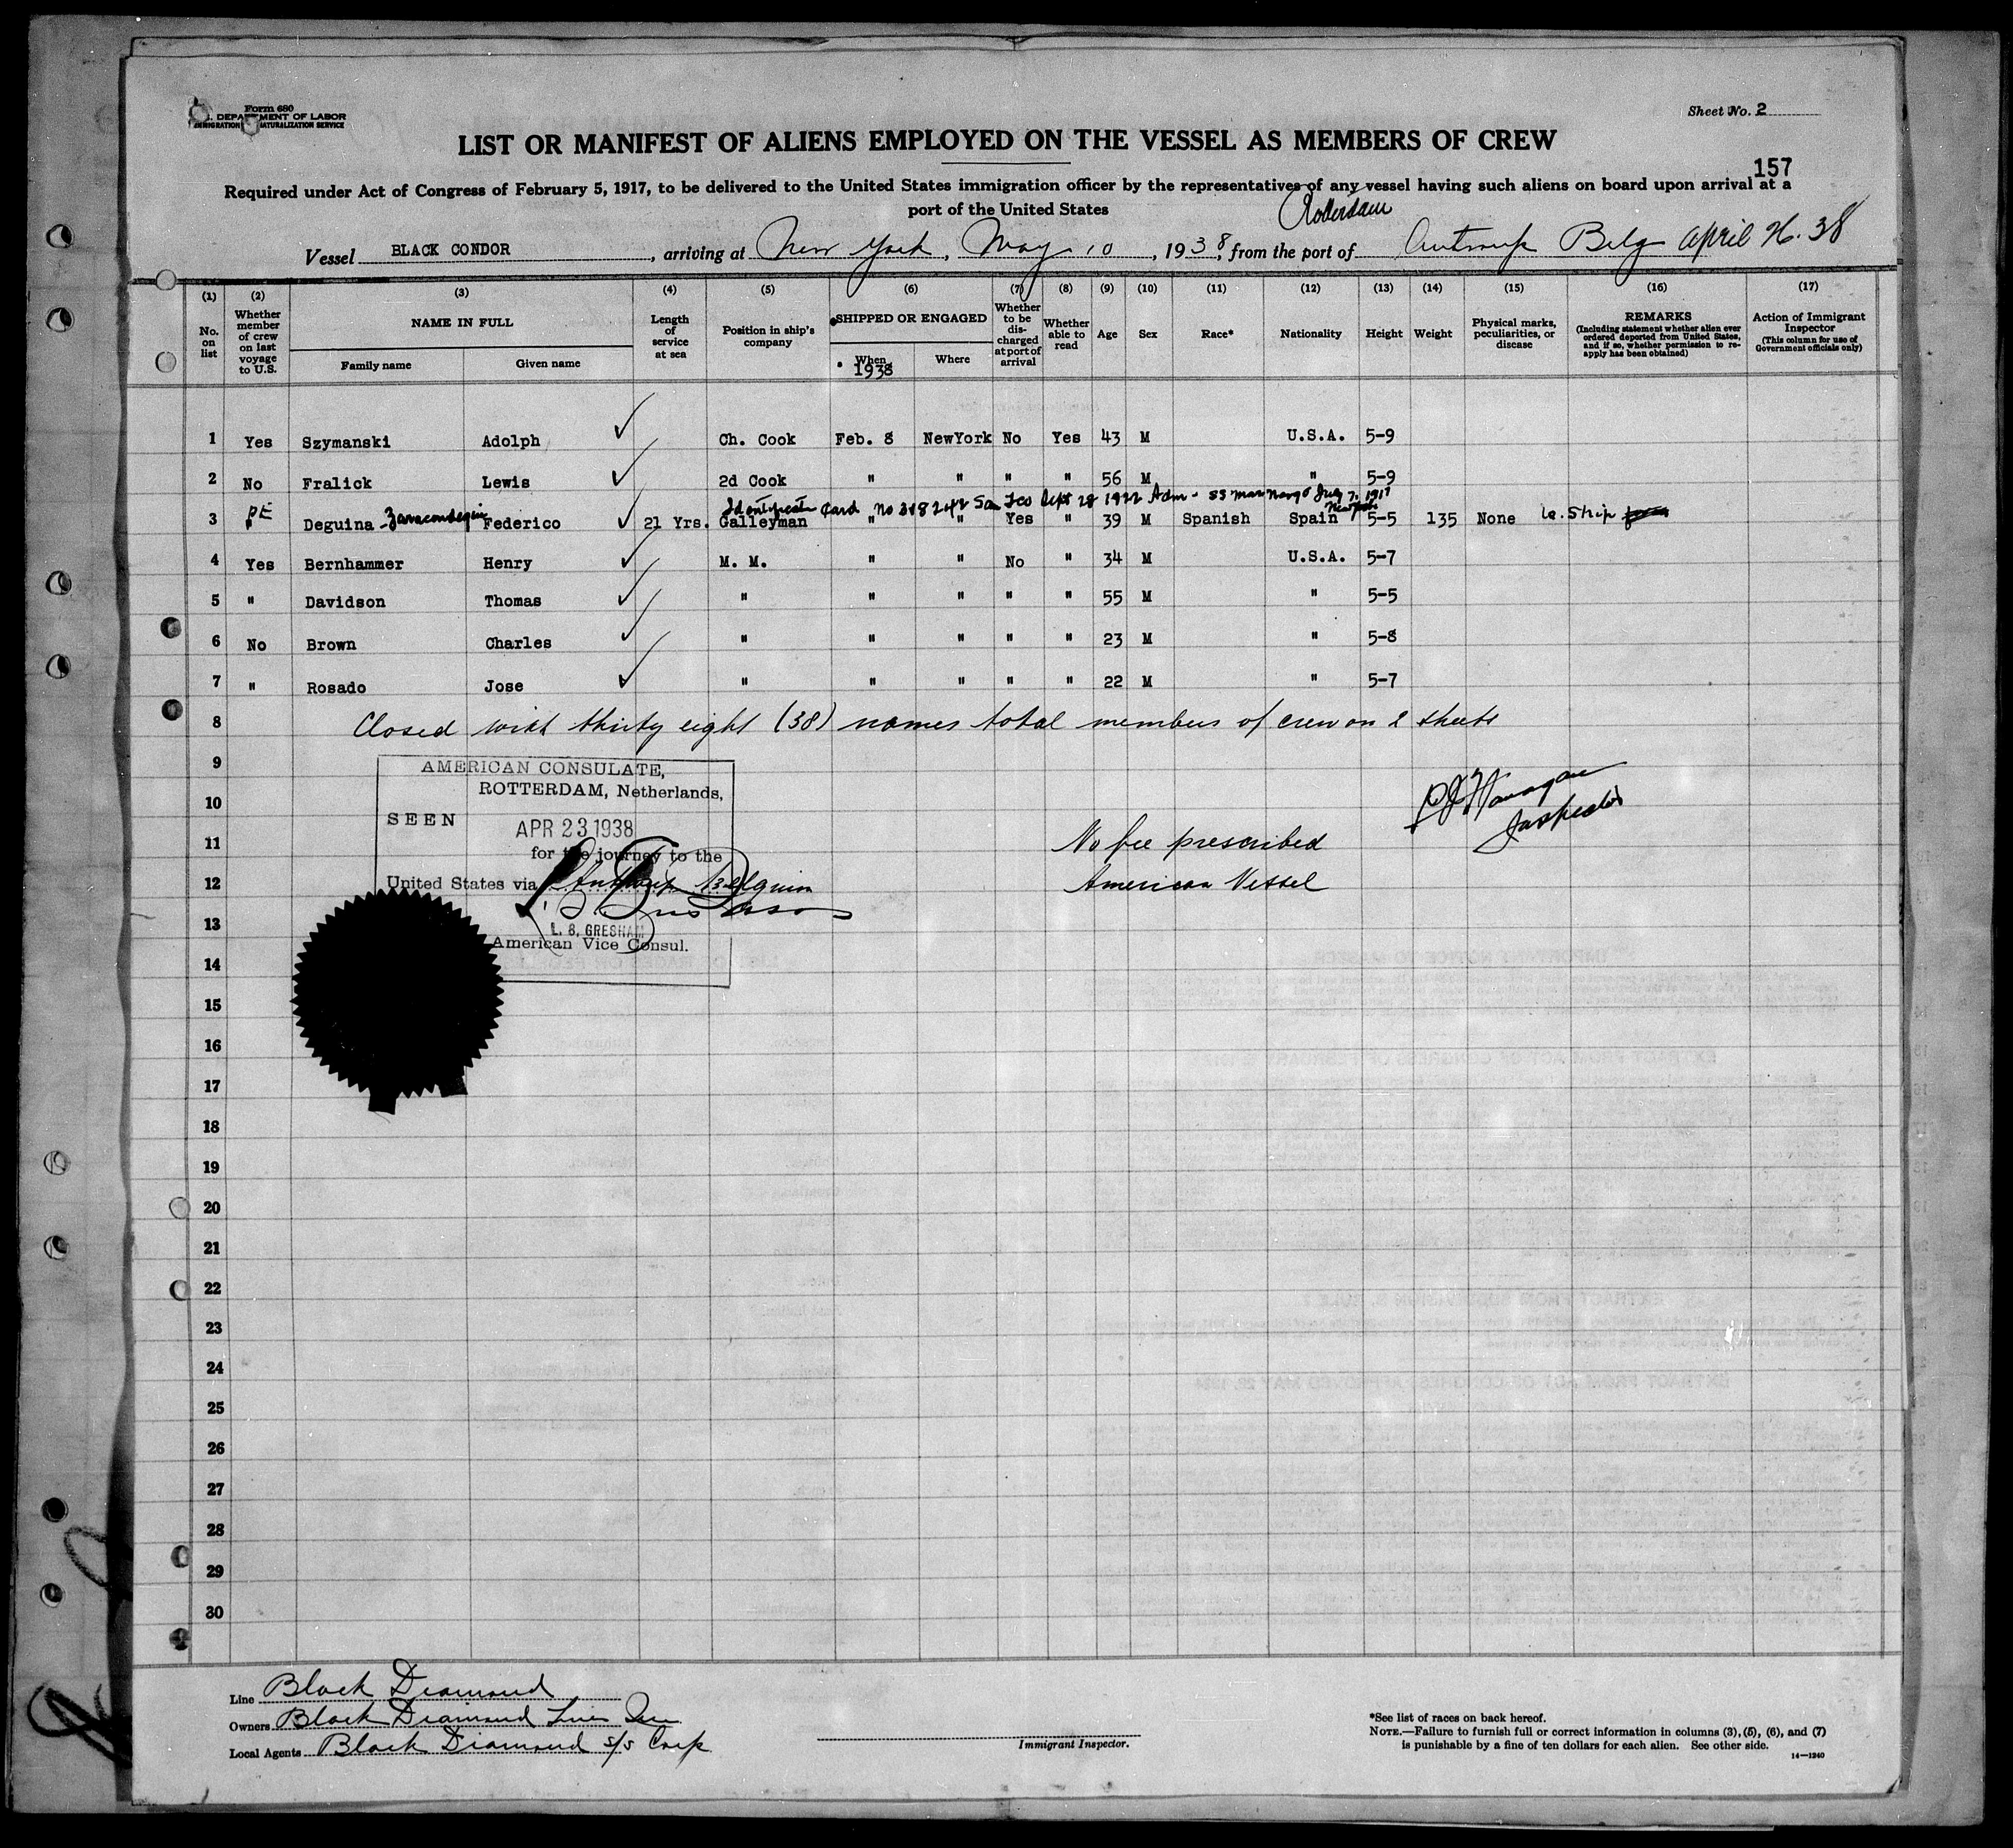 Form 680
DEPARTMENT OF LABOR
IMMIGRATION NATURALIZATION SERVICE
Sheet No. 2
LIST OR MANIFEST OF ALIENS EMPLOYED ON THE VESSEL AS MEMBERS OF CREW
157
Required under Act of Congress of February 5, 1917, to be delivered to the United States immigration officer by the representatives of any vessel having such aliens on board upon arrival at a
port of the United States
Rotterdam
Vessel BLACK CONDOR, arriving at New York, May 10, 1938, from the port of Antwerp Belg April 26. 38
(1) (2) (3) (4) (5) (6) (7) (8) (9) (10) (11) (12) (13) (14) (15) (16) (17)
No. on list
Whether member of crew on last voyage to U.S.
NAME IN FULL
Family name Given name
Length of service at sea
Position in ship's company
SHIPPED OR ENGAGED
When Where
1938
Whether to be discharged at port of arrival
Whether able to read
Age
Sex
Race*
Nationality
Height
Weight
Physical marks, peculiarities, or disease
REMARKS
(Including statement whether alien ever ordered deported from United States, and if so, whether permission to reapply has been obtained)
Action of Immigrant Inspector
(This column for use of Government officials only)
1 Yes Szymanski Adolph Ch. Cook Feb. 8 NewYork No Yes 43 M U.S.A. 5-9
2 No Fralick Lewis 2d Cook " " " " 56 M " 5-9
Card No Sept 28 1922 Adm - SS July 7, 1917
New York
3 PE " Deguina Federico 21 Yrs. Galleyman " " Yes " 39 M Spanish Spain 5-5 135 None Ship
4 Yes Bernhammer Henry M. M. " " No " 34 M U.S.A. 5-7
5 " Davidson Thomas " " " " " 55 M " 5-5
6 No Brown Charles " " " " " 23 M " 5-8
7 " Rosado Jose " " " " " 22 M " 5-7
8 Closed with thirty eight (38) names total members of crew on 2 sheets
9
10
11
12
13
14
15
16
17
18
19
20
21
22
23
24
25
26
27
28
29
30
AMERICAN CONSULATE,
ROTTERDAM, Netherlands,
SEEN
APR 23 1938
for the journey to the
United States via Antwerp Belgium
L. S. GRESHAM
American Vice Consul.
Inspector
No fee prescribed
American Vessel
Line Black Diamond
Owners Black Diamond Lines Inc
Local Agents Black Diamond S/S Corp
Immigrant Inspector.
*See list of races on back hereof.
NOTE.—Failure to furnish full or correct information in columns (3), (5), (6), and (7)
is punishable by a fine of ten dollars for each alien. See other side.
14—1240